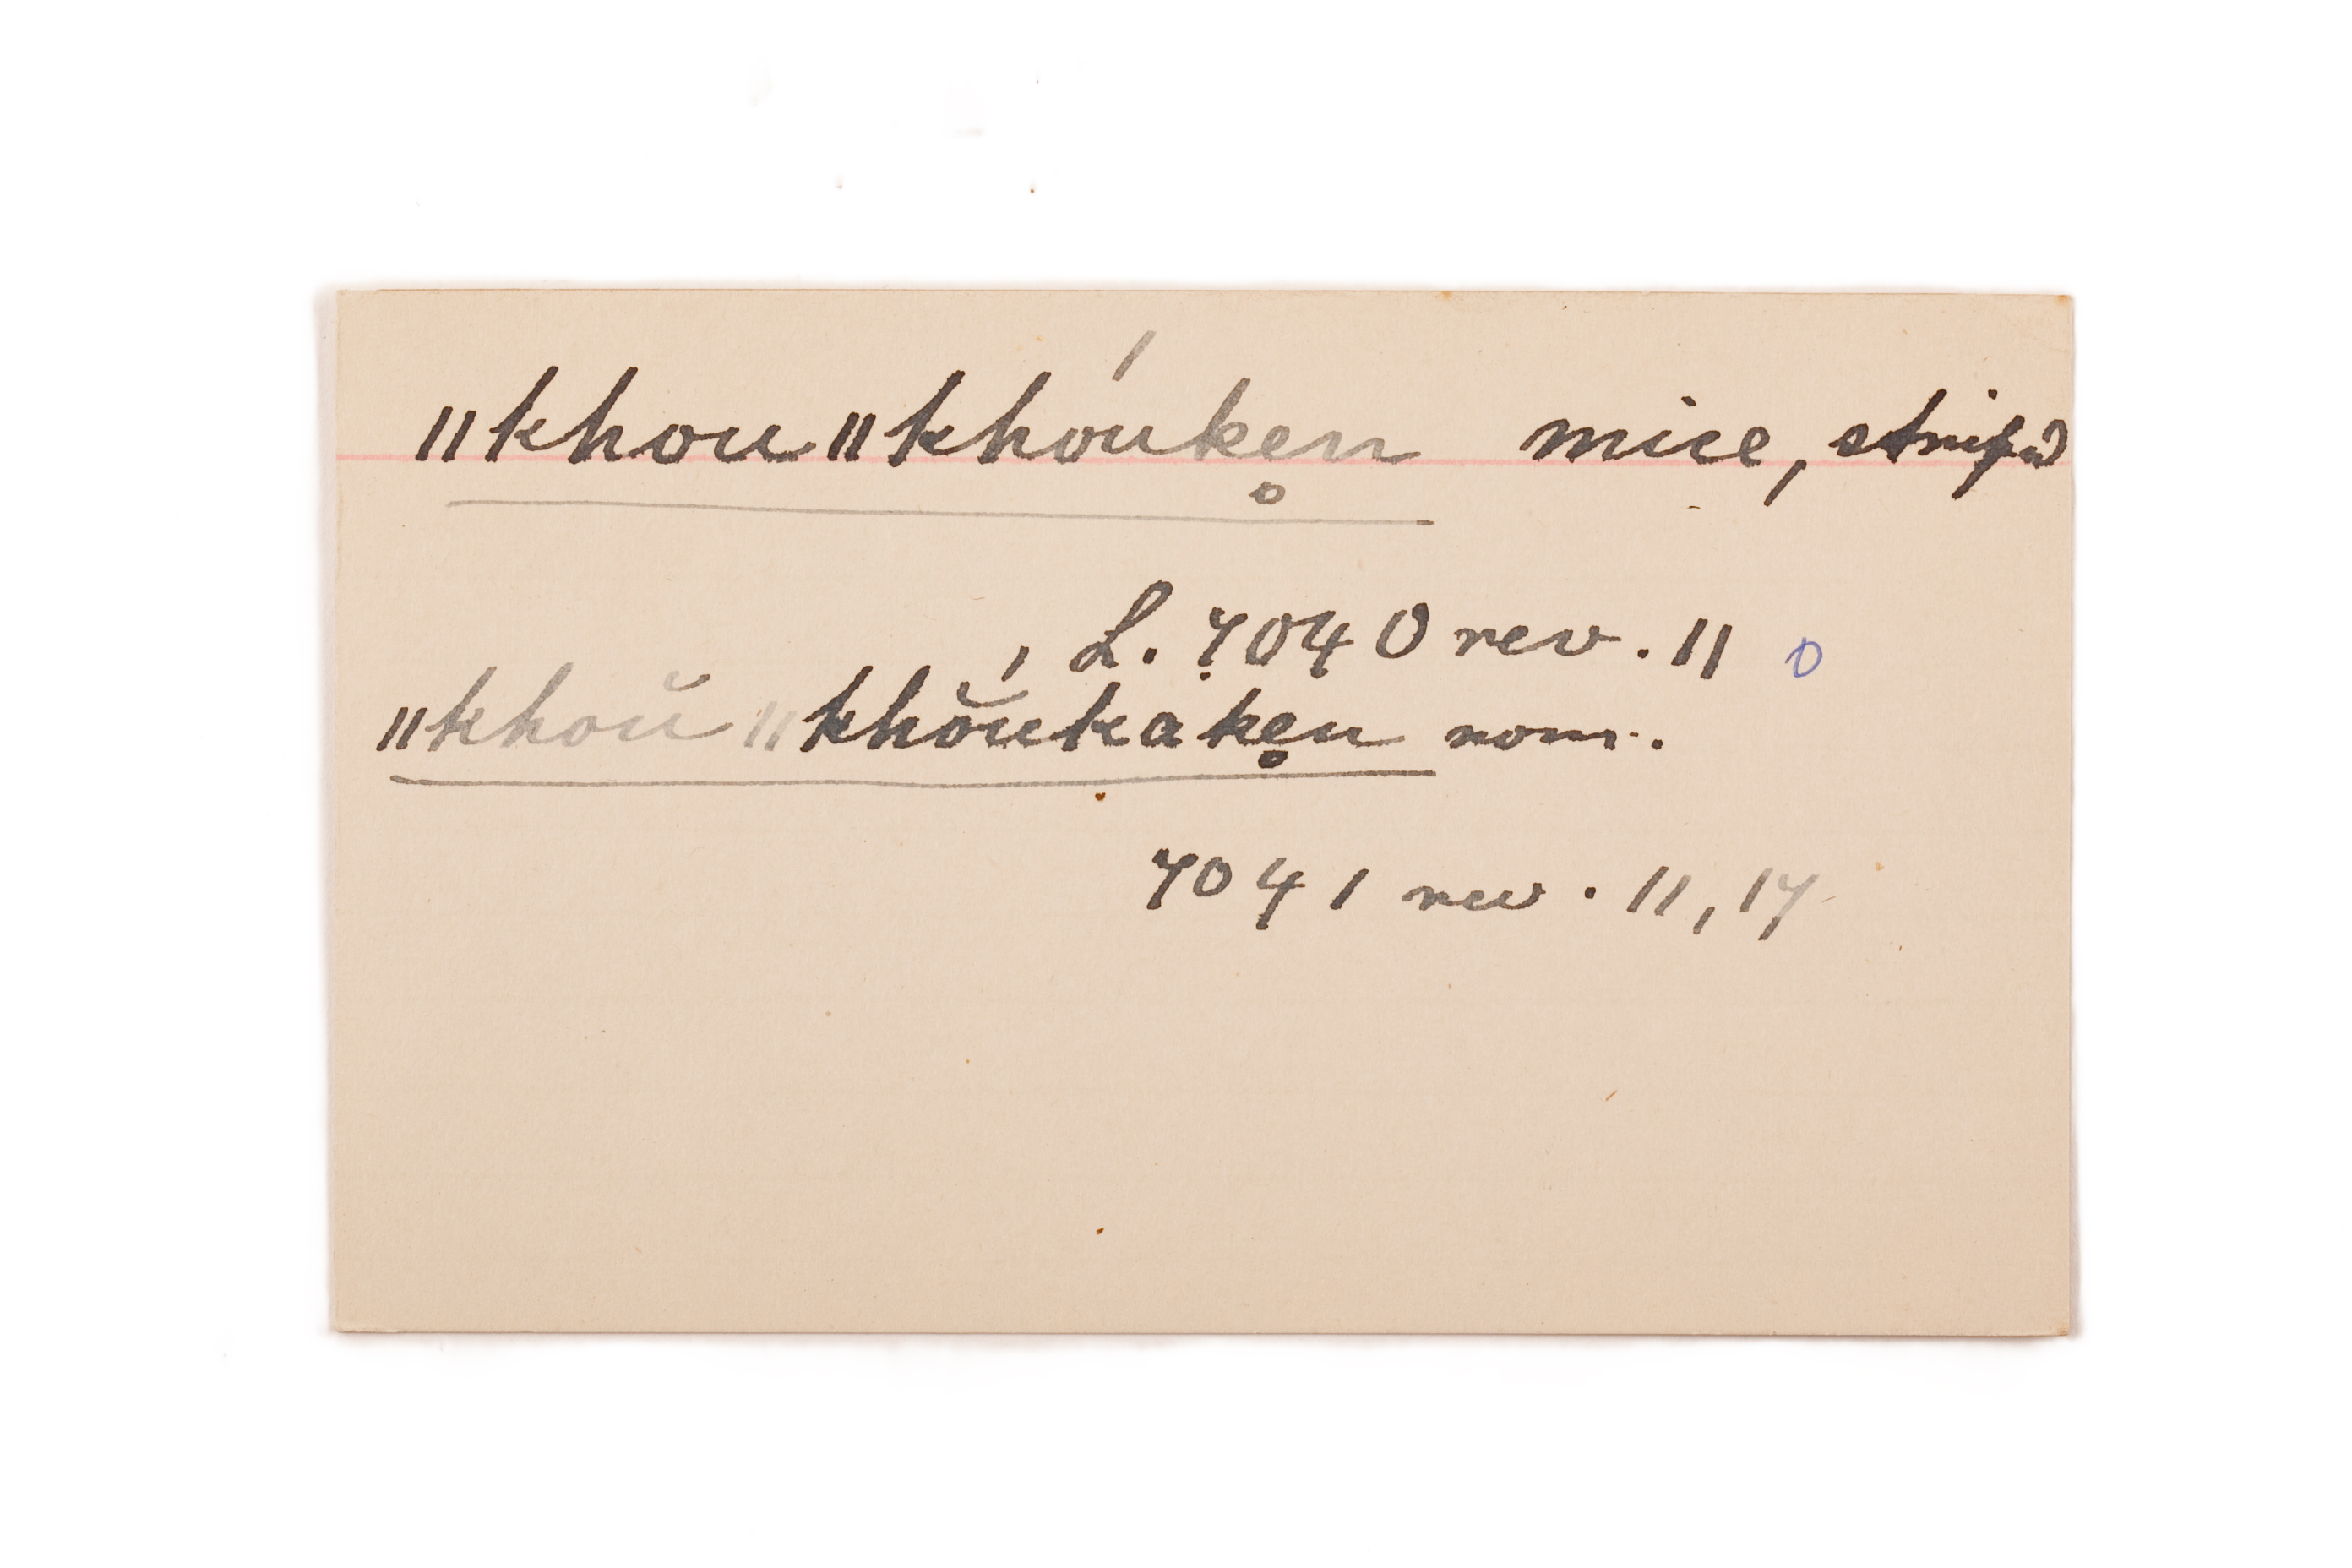 ǁkhou ǁkhóuke̥n mice, striped
L. 7040 rev. 11 0
ǁkhoŭ ǁkhṓ̆ukake̥n nom.
7041 rev. 11, 17